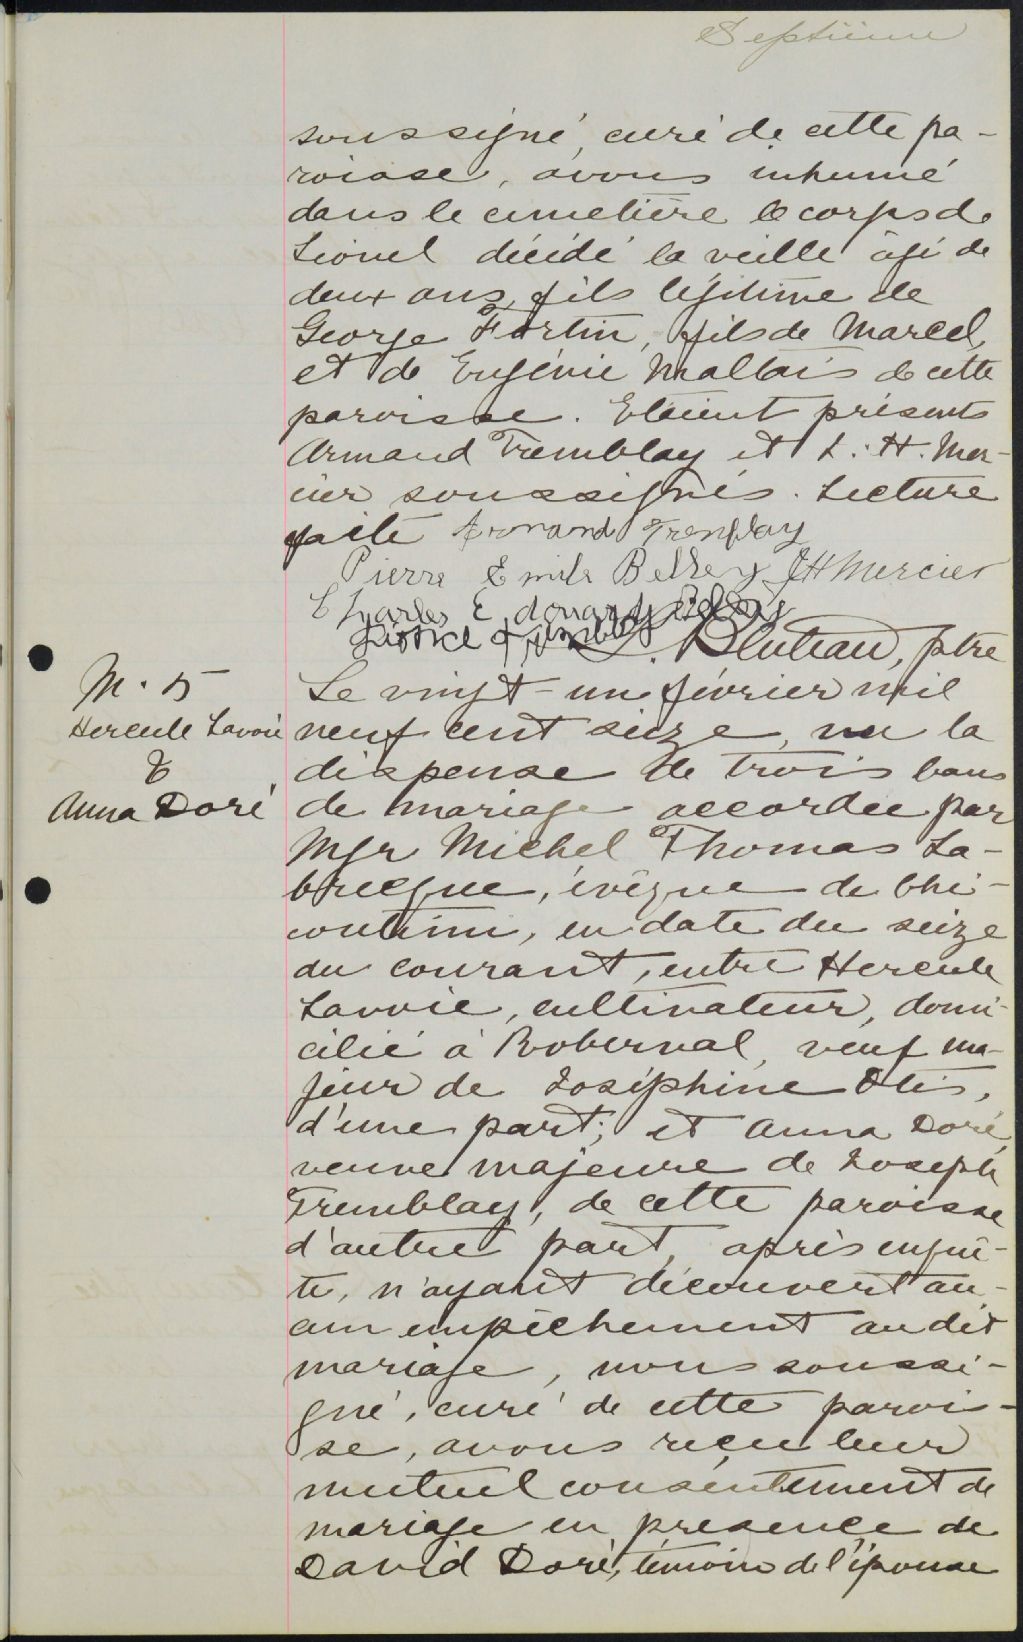 Septième
soussigné, curé de cette pa-
roisse, avons inhumé
dans le cimetière le corps de
Lionel décédé la veille âgé de
deux ans, fils légitime de
George Fortin, fils de Marcel,
et de Eugénie Maltais de cette
paroisse. Etaient présents
Armand Tremblay et L. H. Mer-
cier soussignés. Lecture
faite Armand Tremblay
Pierre Emile Belley LH Mercier
Charles Edouard
Bluteau, ptre
M. 5
Hercule Lavoie
&
Anna Doré
Le vingt-un février mil
neuf cent seize, vu la
dispense de trois bans
de mariage accordée par
Mgr Michel Thomas La-
brecque, évêque de Chi-
coutimi, en date du seize
du courant, entre Hercule
Lavoie, cultivateur, domi-
cilié à Roberval, veuf ma-
jeur de Joséphine Otis,
d'une part; et Anna Doré,
veuve majeure de Joseph
Tremblay, de cette paroisse
d'autre part, après enquê-
te, n'ayant découvert au-
cun empêchement au dit
mariage, nous soussi-
gné, curé de cette parois-
se, avons reçu leur
mutuel consentement de
mariage en présence de
David Doré, témoin de l'épouse